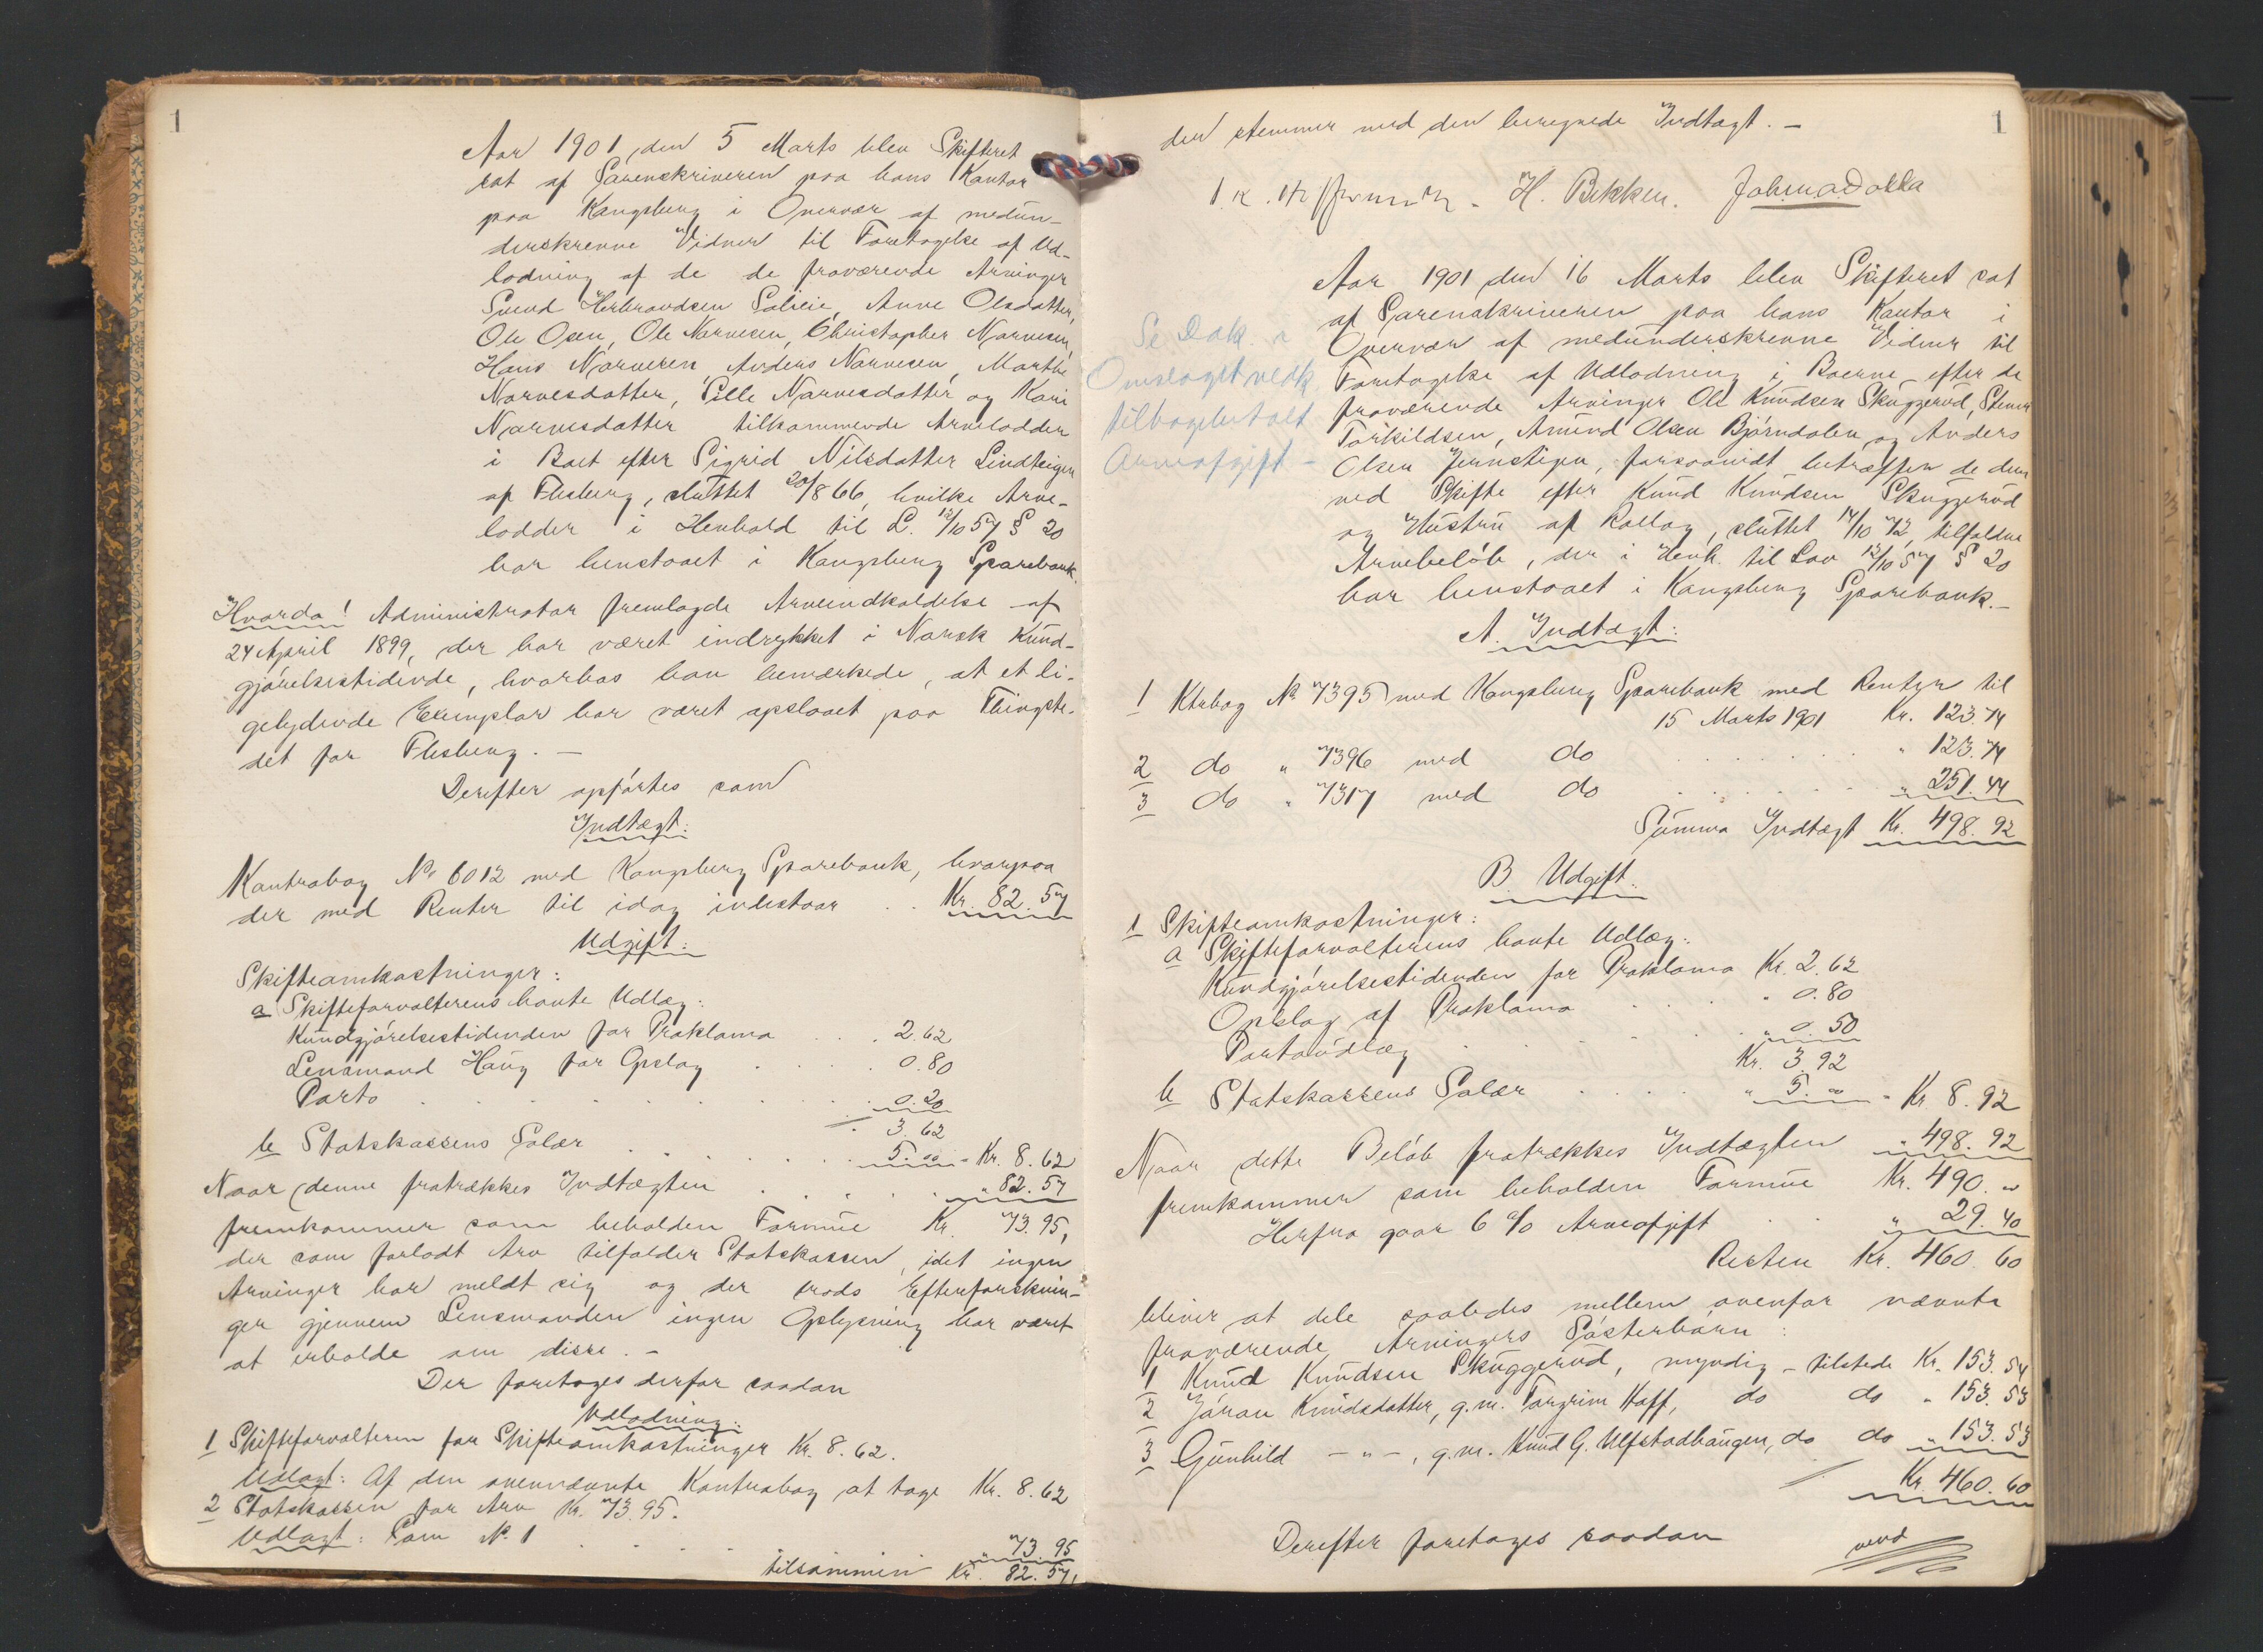 1
Aar 1901, den 5 Marts blev Skifteret
sat af Sorenskriveren paa hans Kontor
paa Kongsberg i Overvær af medun-
derskrevne Vidner til Foretagelse af Ud-
lodning af de de fraværende Arvinger
Svend Herbrandsen Solseie, Anne Olsdatter,
Ole Osen, Ole Narvesen, Christopher Narvesen,
Hans Narvesen, Anders Narvesen, Marthe
Narvesdatter, Pille Narvesdatter og Kari
Narvesdatter tilkommende Arvelodder
i Boet efter Sigrid Nilsdatter Lindteigen
af Flesberg, sluttet 20/8 66, hvilke Arve-
lodder i Henhold til L. 12/10 57 § 20
har henstaaet i Kongsberg Sparebank.
Hvorda! Administrator fremlagde Arveindkaldelse af
24 April 1899, der har været indrykket i Norsk Kund-
gjørelsestidende, hvorhos han bemærkede, at et li-
gelydende Exemplar har været opslaaet paa Thingste-
det for Flesberg. —
Derefter opførtes som
Indtægt:
Kontrabog No 6012 med Kongsberg Sparebank, hvorpaa
der med Renter til idag indestaar . . Kr. 82.57
Udgift:
Skifteomkostninger:
a Skifteforvalterens havte Udlæg:
Kundgjørelsestidenden for Proklama . . . 2.62
Lensmand Haug for Opslag . . . . 0.80
Porto . . . . . . . 0.20
3.62
b Statskassens Salær . . . . . 5.00 - Kr. 8.62
Naar denne fratrækkes Indtægten . . . . . " 82.57
fremkommer som beholden Formue Kr. 73.95,
der som forlodt Arv tilfalder Statskassen, idet ingen
Arvinger har meldt sig og der trods Efterforsknin-
ger gjennem Lensmanden ingen Oplysning har været
at erholde om disse. —
Der foretoges derfor saadan
Udlodning:
1 Skifteforvalteren for Skifteomkostninger Kr. 8.62.
Udlagt: Af den ovennævnte Kontrabog at tage Kr. 8.62
2 Statskassen for Arv Kr. 73.95.
Udlagt: Som No 1 . . . . . " 73.95
tilsammen Kr. 82.57,
1
der stemmer med den beregnede Indtægt. —
H. Bekken. Johna Dokka
Aar 1901 den 16 Marts blev Skifteret sat
af Sorenskriveren paa hans Kontor i
Overvær af medunderskrevne Vidner til
Foretagelse af Udlodning i Boerne efter de
fraværende Arvinger Ole Knudsen Skuggerud, Stener
Torkildsen, Amund Olsen Bjørndalen og Anders
Olsen Jernstigen, forsaavidt betræffer de dem
ved Skifte efter Knud Knudsen Skuggerud
og Hustru af Rollag, sluttet 14/10 72, tilfaldne
Arvebeløb, der i Henh. til Lov 12/10 57 § 20
har henstaaet i Kongsberg Sparebank. —
Se Dok. i
Omslaget vedk.
tilbagebetalt
Arveafgift —
A. Indtægt:
1 Ktrbog No 7395 med Kongsberg Sparebank med Renter til
15 Marts 1901 Kr. 123.74
2 do " 7396 med do . . . . . " 123.74
3 do " 7317 med do . . . . . " 251.44
Summa Indtægt Kr. 498.92
B. Udgift:
1 Skifteomkostninger:
a Skifteforvalterens havte Udlæg:
Kundgjørelsestidenden for Proklama Kr. 2.62
Opslag af Proklama . . . . " 0.80
Portoudlæg . . . . . " 0.50
Kr. 3.92
b Statskassens Salær . . . . " 5.00 - Kr 8.92
Naar dette Beløb fratrækkes Indtægten " 498.92
fremkommer som beholden Formue Kr. 490. "
Herfra gaar 6 % Arveafgift . . " 29.40
Resten Kr. 460.60
bliver at dele saaledes mellem ovenfor nævnte
fraværende Arvingers Søsterbørn:
1 Knud Knudsen Skuggerud, myndig - tilstede Kr. 153.54
2 Jøran Knudsdatter, g.m. Torgrim Hoff, do do " 153.53
3 Gunhild — " —, g.m. Knud G. Ulfstadhaugen, do do " 153.53
Kr. 460.60
Derefter foretoges saadan
vend